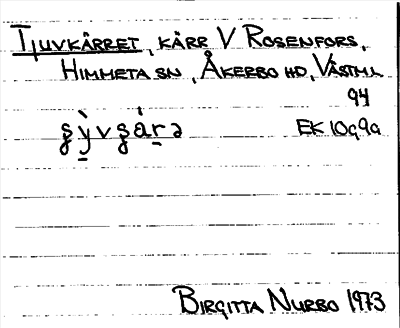 Tjuvkärret, kärr V Rosenfors,
Himmeta sn, Åkerbo hd, Västml
94
EK 10g9a
Birgitta Nurbo 1973